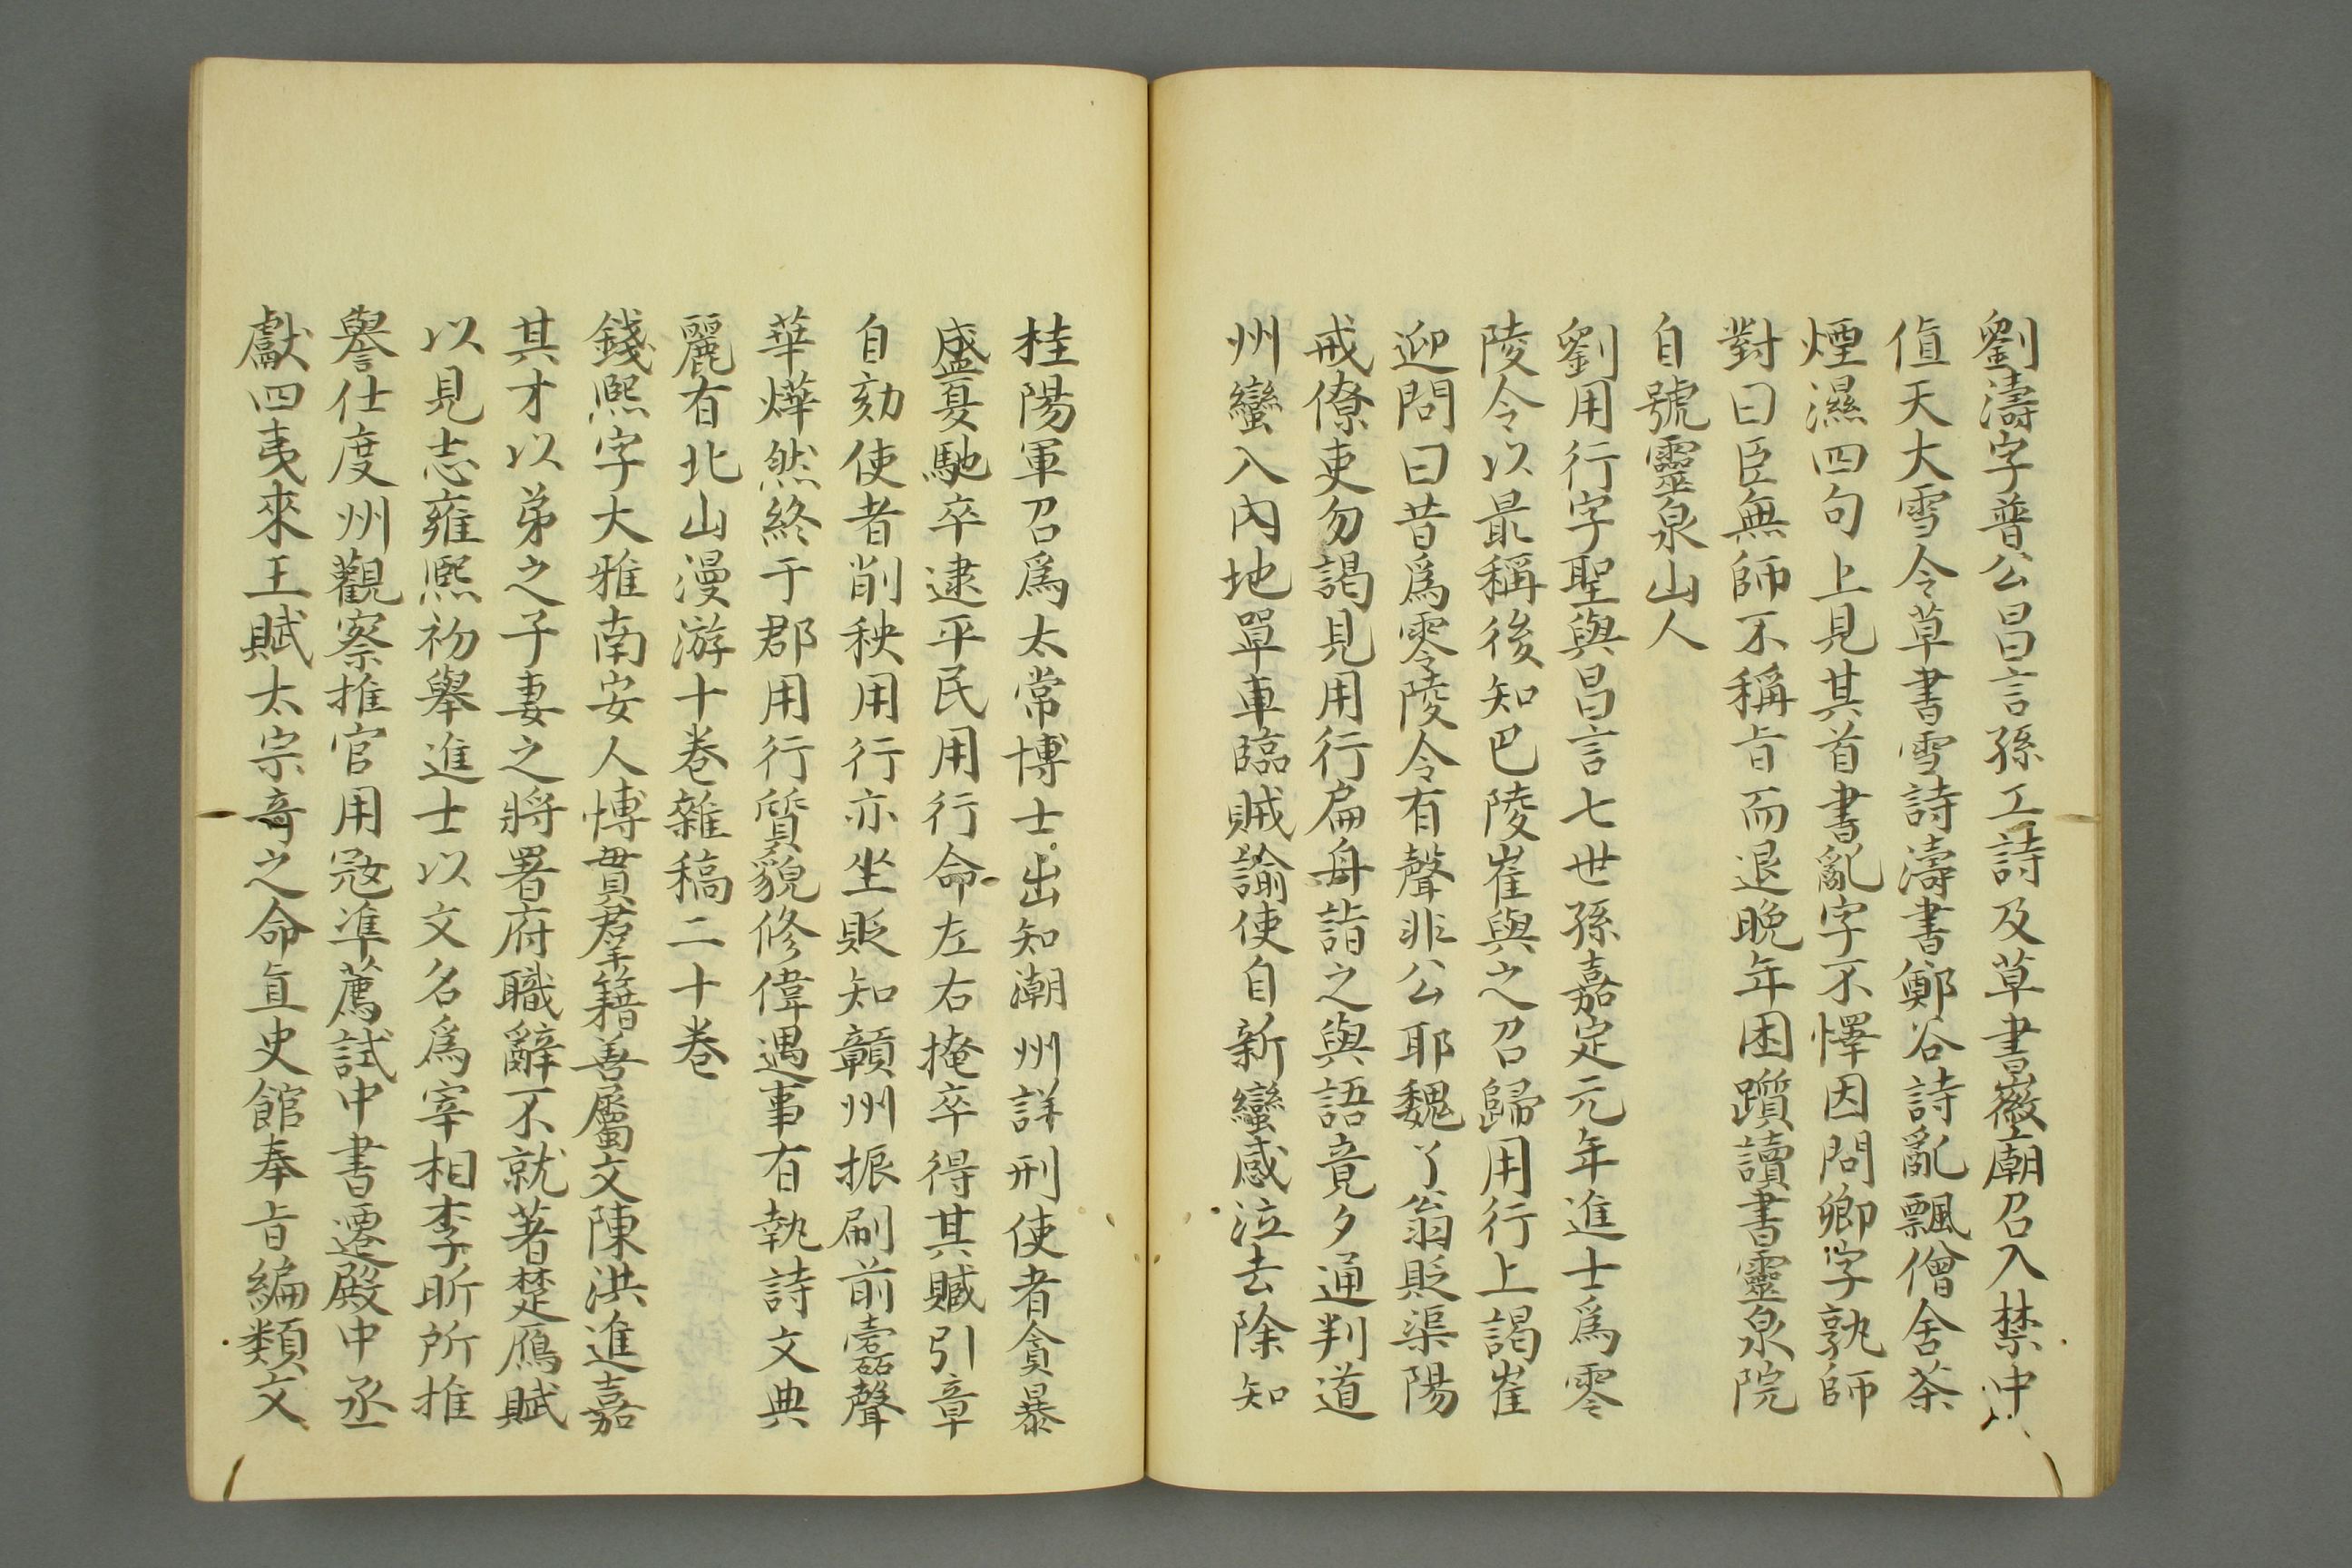 劉濤字普公昌言孫工詩及草書徽廟召入禁中
值天大雪令草書雪詩濤書鄭谷詩亂飄僧舍茶
煙濕四句上見其首書亂字不懌因問卿字孰師
對曰臣無師不稱旨而退晚年困躓讀書靈泉院
自號靈泉山人
劉用行字聖與昌言七世孫嘉定元年進士爲零
陵令以最稱後知巴陵崔與之召歸用行上謁崔
迎問曰昔爲零陵令有聲非公耶魏了翁貶渠陽
戒僚吏勿謁見用行扁舟詣之與語竟夕通判道
州蠻入內地單車臨賊諭使自新蠻感泣去除知
桂陽軍召爲太常博士出知潮州詳刑使者貪暴
盛夏馳卒逮平民用行命左右掩卒得其贓引章
自劾使者削秧用行亦坐貶知贛州振刷前蠹聲
華燁然終于郡用行質貌修偉遇事有執詩文典
麗有北山漫游十卷雜稿二十卷
錢熙字大雅南安人博貫羣籍善屬文陳洪進嘉
其才以弟之子妻之將署府職辭不就著楚鴈賦
以見志雍熙初舉進士以文名爲宰相李昕所推
譽仕度州觀察推官用寇準薦試中書遷殿中丞
獻四夷來王賦太宗奇之命直史館奉旨編類文